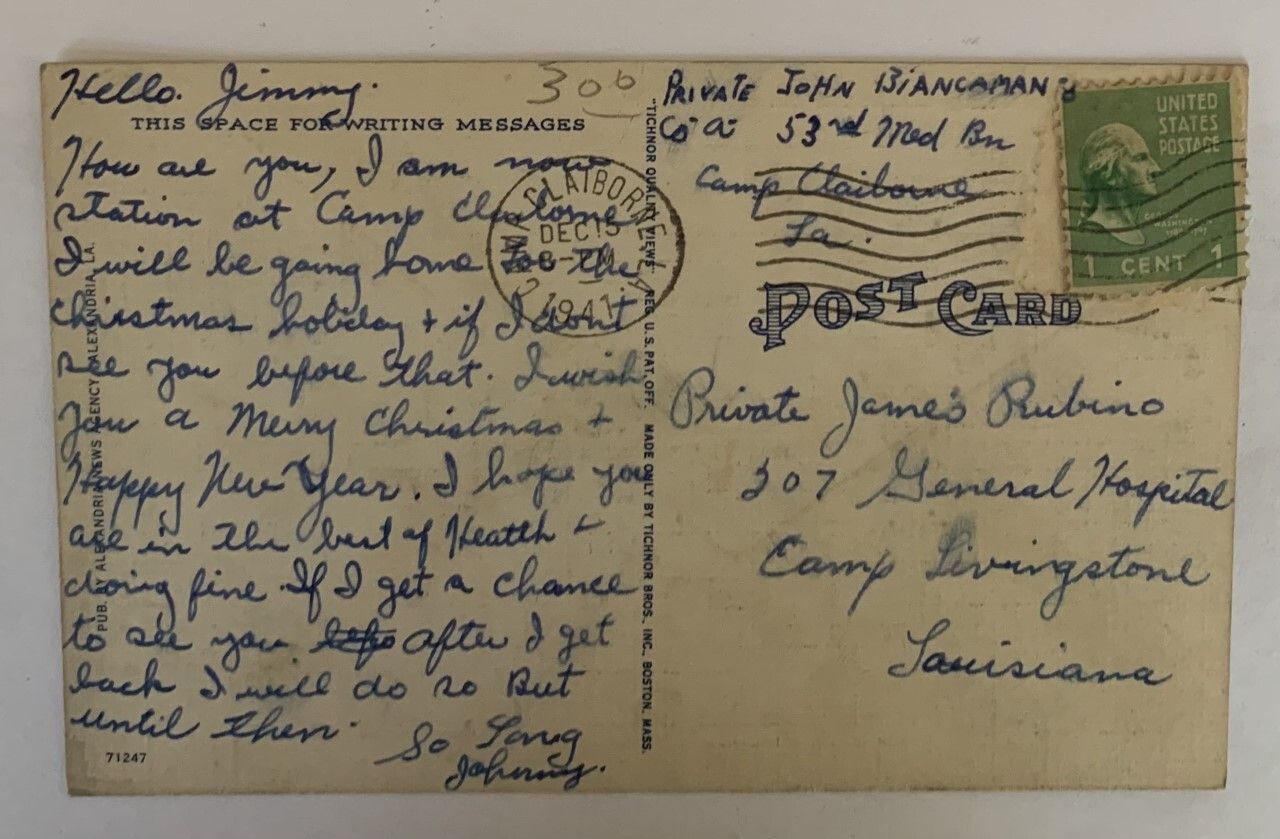 Hello. Jimmy.
THIS SPACE FOR WRITING MESSAGES
How are you, I am now
station at Camp Claiborne
I will be going home for the
christmas holiday + if I dont
see you before that. I wish
you a Merry Christmas +
Happy New Year. I hope you
are in the best of Health +
doing fine. If I get a chance
to see you after I get
back I will do so But
until then.
So Long
Johnny.
71247
PUB. BY ALEXANDRIA NEWS AGENCY, ALEXANDRIA, LA.
300
CAMP CLAIBORNE, LA
DEC 15
8-PM
1941
"TICHNOR QUALITY VIEWS" REG. U.S. PAT. OFF. MADE ONLY BY TICHNOR BROS., INC., BOSTON, MASS.
PRIVATE JOHN BIANCAMAN
Co A 53rd Med Bn
Camp Claiborne
La.
UNITED
STATES
POSTAGE
1 CENT 1
POST CARD
Private James Rubino
307 General Hospital
Camp Livingstone
Louisiana